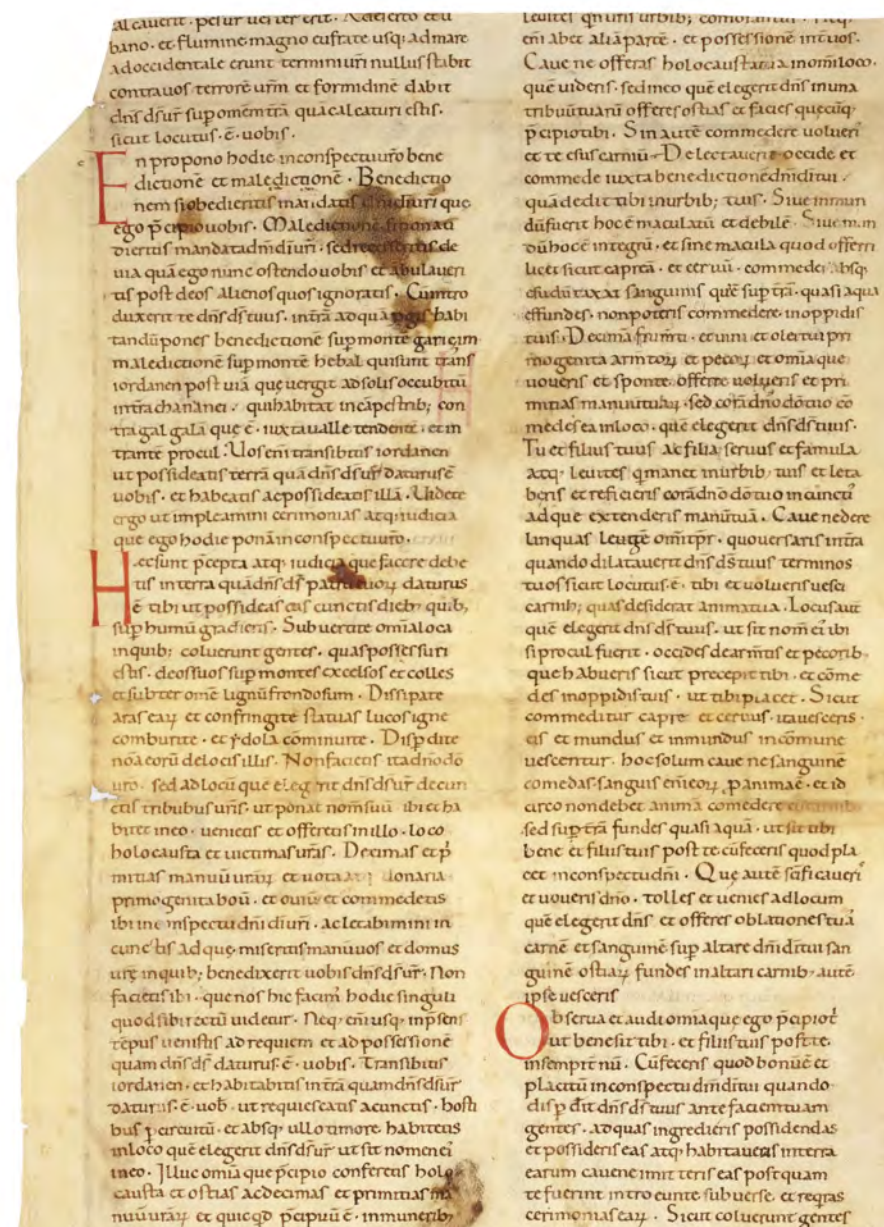 al cauerit · pesur uester erit. A deserto et li
bano · et flumine magno eufrate usq; ad mare
ad occidentale erunt termini uri nullus stabit
contra uos terrorē urm et formidinē dabit
dns ds ur sup omem trā quā calcaturi estis.
sicut locutus · ē · uobis ·
En propono hodie in conspectu uro bene
dictionē et maledictionē · Benedictio
nem si obedieritis mandatis dni di uri que
ego p̄cipio uobis · Maledictionē si non au
dieritis mandata dni di uri · sed recesseritis de
uia quā ego nunc ostendo uobis et abulaueri
tis post deos alienos quos ignoratis · Cū intro
duxerit te dns ds tuus · in trā ad quā pgis habi
tandū pones benedictionē sup montē garizim
maledictionē sup montē hebal qui sunt trans
iordanen post uiā que uergit ad solis occubitū
in trā chananei · qui habitat in cāpestrib; con
tra galgalā que ē · iuxta ualle tendentē · et in
trantē procul · Uos eni transibitis iordanen
ut possideatis terrā quā dns ds ur daturus ē
uobis · et habeatis ac possideatis illā · Uidete
ergo ut impleamini cerimonias atq; iudicia
que ego hodie ponā in conspectu uro ·
Hec sunt p̄cepta atq; iudicia que facere debe
tis in terra quā dns ds patrū tuoꝝ daturus
ē tibi ut possideas eas cunctis dieb; quib;
sup humū gradieris · Subuertite omia loca
in quib; coluerunt gentes · quas possessuri
estis · deos suos sup montes excelsos et colles
et subter omē lignū frondosum · Dissipate
aras eaꝝ et confringite statuas lucos igne
comburite · et ydola cōminuite · Disp̄dite
noa eorū de locis illis · Non facietis ita dno dō
uro · sed ad locū que elegerit dns ds ur de cun
ctis tribubus uris · ut ponat nom̄ suū ibi et ha
bitet in eo · uenietis et offeretis in illo · loco
holocausta et uictimas uras · Decimas et p̄
mitias manuū uraꝝ et uota donaria
primogenita boū · et ouiū et commedetis
ibi in cinspectu dni di uri · ac letabimini in
cunctis ad que miseritis manū uos et domus
urę in quib; benedixerit uobis dns ds ur · Non
facietis ibi · que nos hic facim̄ hodie singuli
quod sibi rectū uidetur · Neq; eni usq; in p̄sens
tēpus uenistis ad requiem et ad possessionē
quam dns ds daturus · ē · uobis · Transibitis
iordanen · et habitabitis in trā quam dns ds ur
daturus · ē · uob · ut requiescatis a cunctis · hosti
bus p circuitū · et absq; ullo timore habiteris
in loco quē elegerit dns ds ur ut sit nomen ei
in eo · Illuc omia que p̄cipio conferetis holo
causta et ostias ac decimas et primitias ma
nuū uraꝝ et quicqd p̄cipuū ē · in munerib;
leuites qn uris urbib; comoratur · Neq;
eni abet aliā partē · et possessionē int uos ·
Caue ne offeras holocausta tua in omi loco ·
quē uideris · sed in eo quē elegerit dns in una
tribuū tuarū offeres ostias et facies quecūq;
p̄cipio tibi · Sin autē commedere uolueri
et te esus carniū · Delectauerit occide et
commede iuxta benedictionē dni di tui ·
quā dedit tibi in urbib; tuis · Siue inmun
dū fuerit hoc ē maculatū et debilē · Siue mun
dū hoc ē integrū · et sine macula quod offerri
licet sicut capreā · et ceruū · commedes absq;
esu dūtaxat sanguinis quē sup trā · quasi aqua
effundes · non poteris commedere in oppidis
tuis · Decimā frumti · et uini et olei tui pri
mogenita armtoꝝ et pecoꝝ et omia que
uoueris et sponte offerre uolueris et pri
mitias manuū tuaꝝ · sed corā dno dō tuo cō
medes ea in loco · quē elegerit dns ds tuus ·
Tu et filius tuus ac filia seruus et famula
atq; leuites q manet in urbib; tuis et leta
beris et reficieris corā dno dō tuo in cuncti
ad que extenderis manū tuā · Caue ne dere
linquas leuitē omi tpr · quo uersaris in trā
quando dilatauerit dns ds tuus terminos
tuos sicut locutus · ē · tibi et uolueris uesci
carnib; quas desiderat anima tua · Locus aut
quē elegerit dns ds tuus · ut sit nom̄ ei ibi
si procul fuerit · occides de armtis et pecorib;
que habueris sicut precepit tibi · et cōme
des in oppidis tuis · ut tibi placet · Sicut
commeditur caprę et ceruus · ita uesceris ·
eis et mundus et inmundus in cōmune
uescentur · hoc solum caue ne sanguinē
comedas · sanguis eni eoꝝ p anima ē · et id
circo non debes anima comedere
sed sup trā fundes quasi aquā · ut sit tibi
bene et filiis tuis post te · cū feceris quod pla
cet in conspectu dni · Que autē scificaueri
et uoueris dno · tolles et uenies ad locum
quē elegerit dns et offeres oblationes tuā
carnē et sanguinē sup altare dni di tui san
guinē ostiaꝝ fundes in altari carnib; autē
ipse uesceris
Obserua et audi omia que ego p̄cipio t
ut bene sit tibi · et filiis tuis post te ·
in sempit nū · Cū feceris quod bonū ē et
placitū in conspectu dni di tui quando
disp̄dit dns ds tuus ante faciem tuam
gentes · ad quas ingredieris possidendas
et possideris eas atq; habitaueris in terra
earum caue ne imit teris eas postquam
te fuerint introeunte subuersę et reqras
cerimonias eaꝝ · Sicut coluerunt gentes